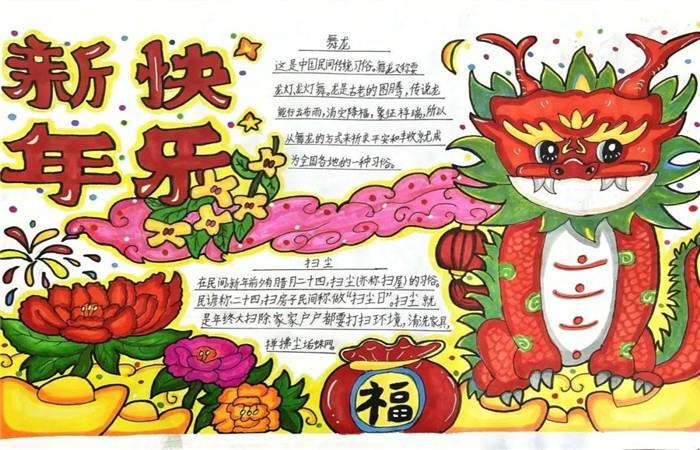 新年快乐
舞龙
这是中国民间传统习俗。舞龙又称耍
龙灯,龙灯舞。龙是古老的图腾,传说龙
能行云布雨,消灾降福,象征祥瑞,所以
以舞龙的方式来祈求平安和丰收就成
为全国各地的一种习俗。
扫尘
在民间,新年前夕有腊月二十四,扫尘(亦称扫屋)的习俗。
民谚称二十四,扫房子民间称做"扫尘日"。扫尘就
是年终大扫除家家户户都要打扫环境,清洗家具,
掸拂尘垢蛛网。
福